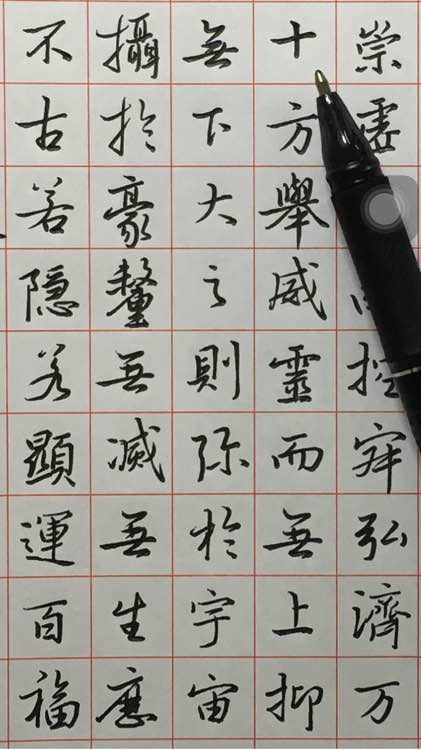 崇虛控寂弘濟万
十方舉威靈而無上抑
無下大之則弥於宇宙
攝於豪釐無滅無生歷
不古若隱若顯運百福